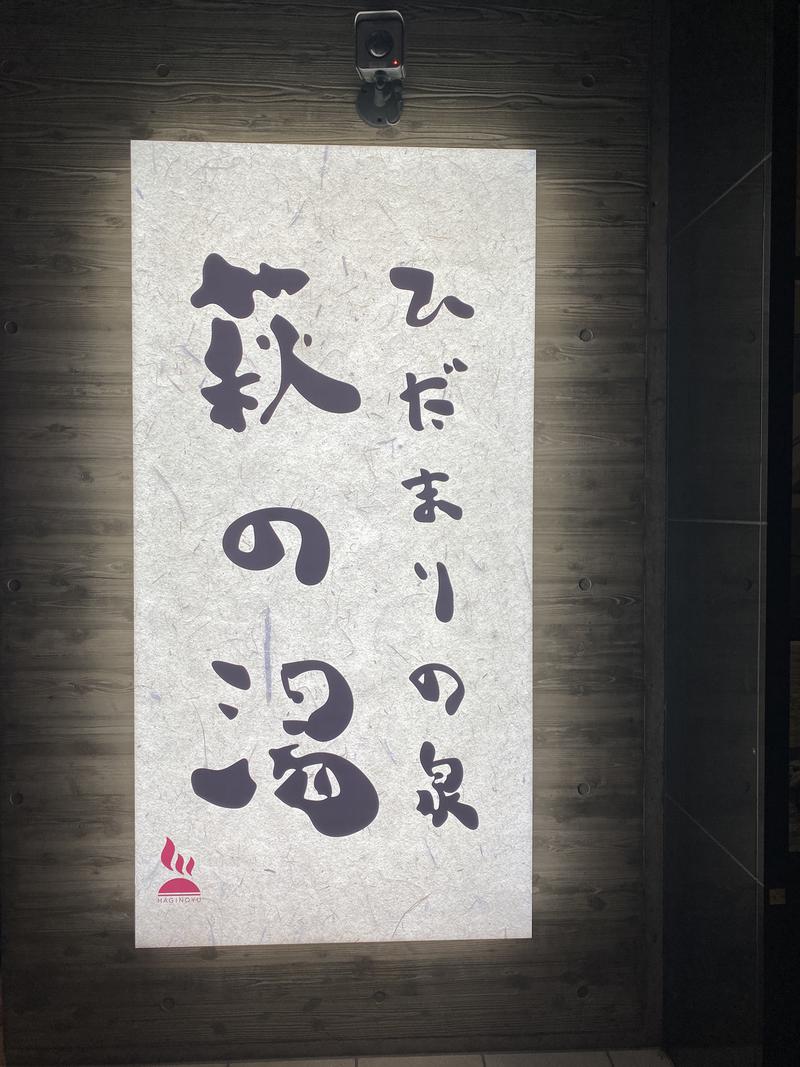 ひだまりの泉
萩の湯
HAGINOYU